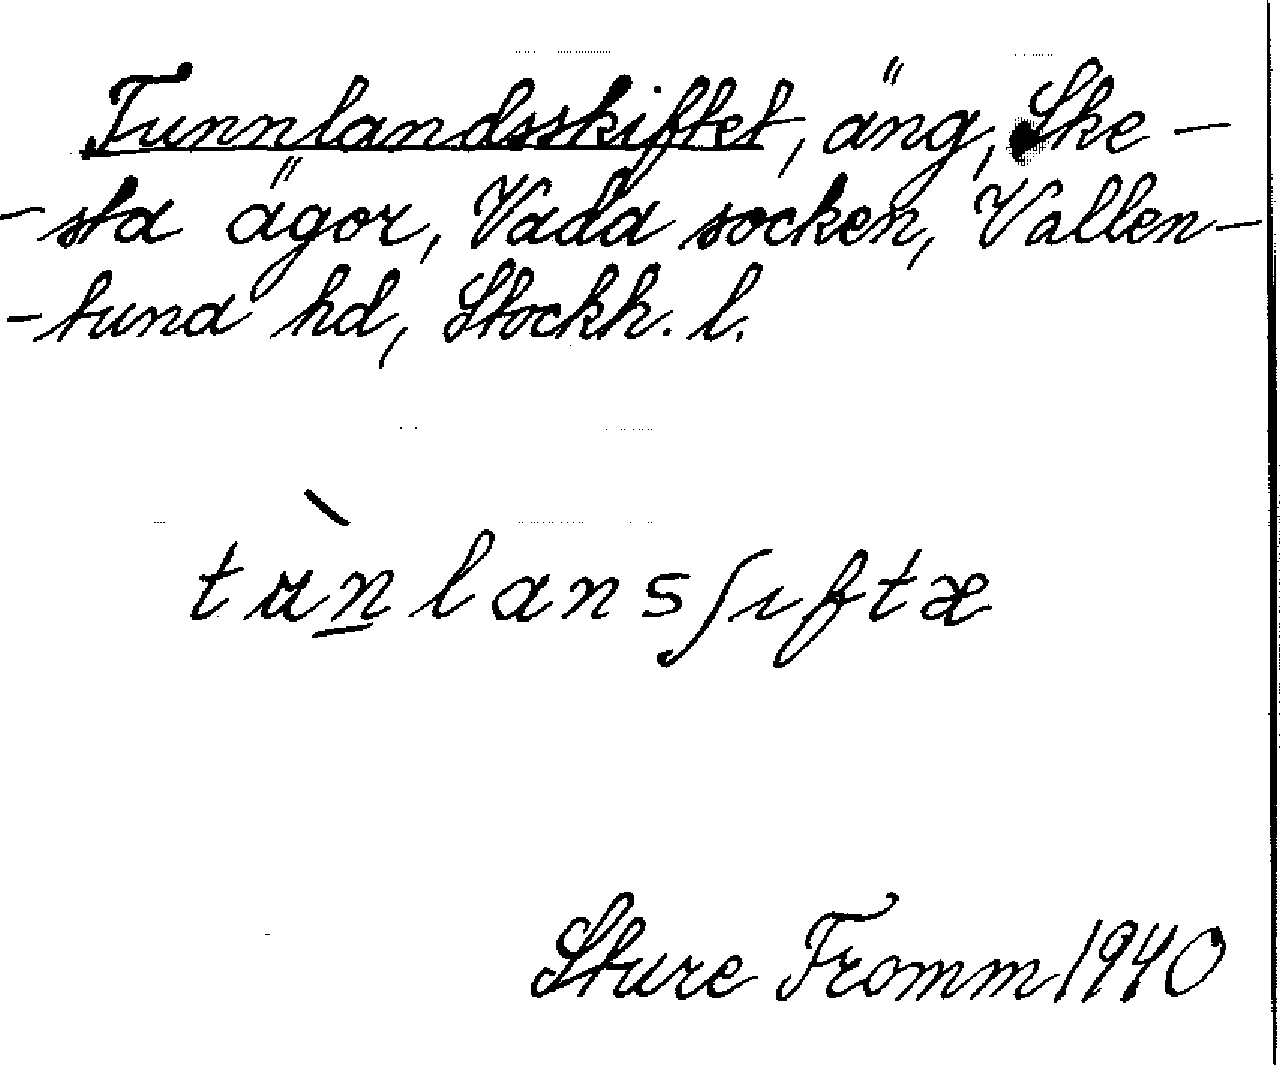 Tunnlandsskiftet, äng, Ske-
-sta ägor, Vada socken, Vallen-
-tuna hd, Stockh. l.
tùn̲lansʃıftæ
Sture Fromm 1940